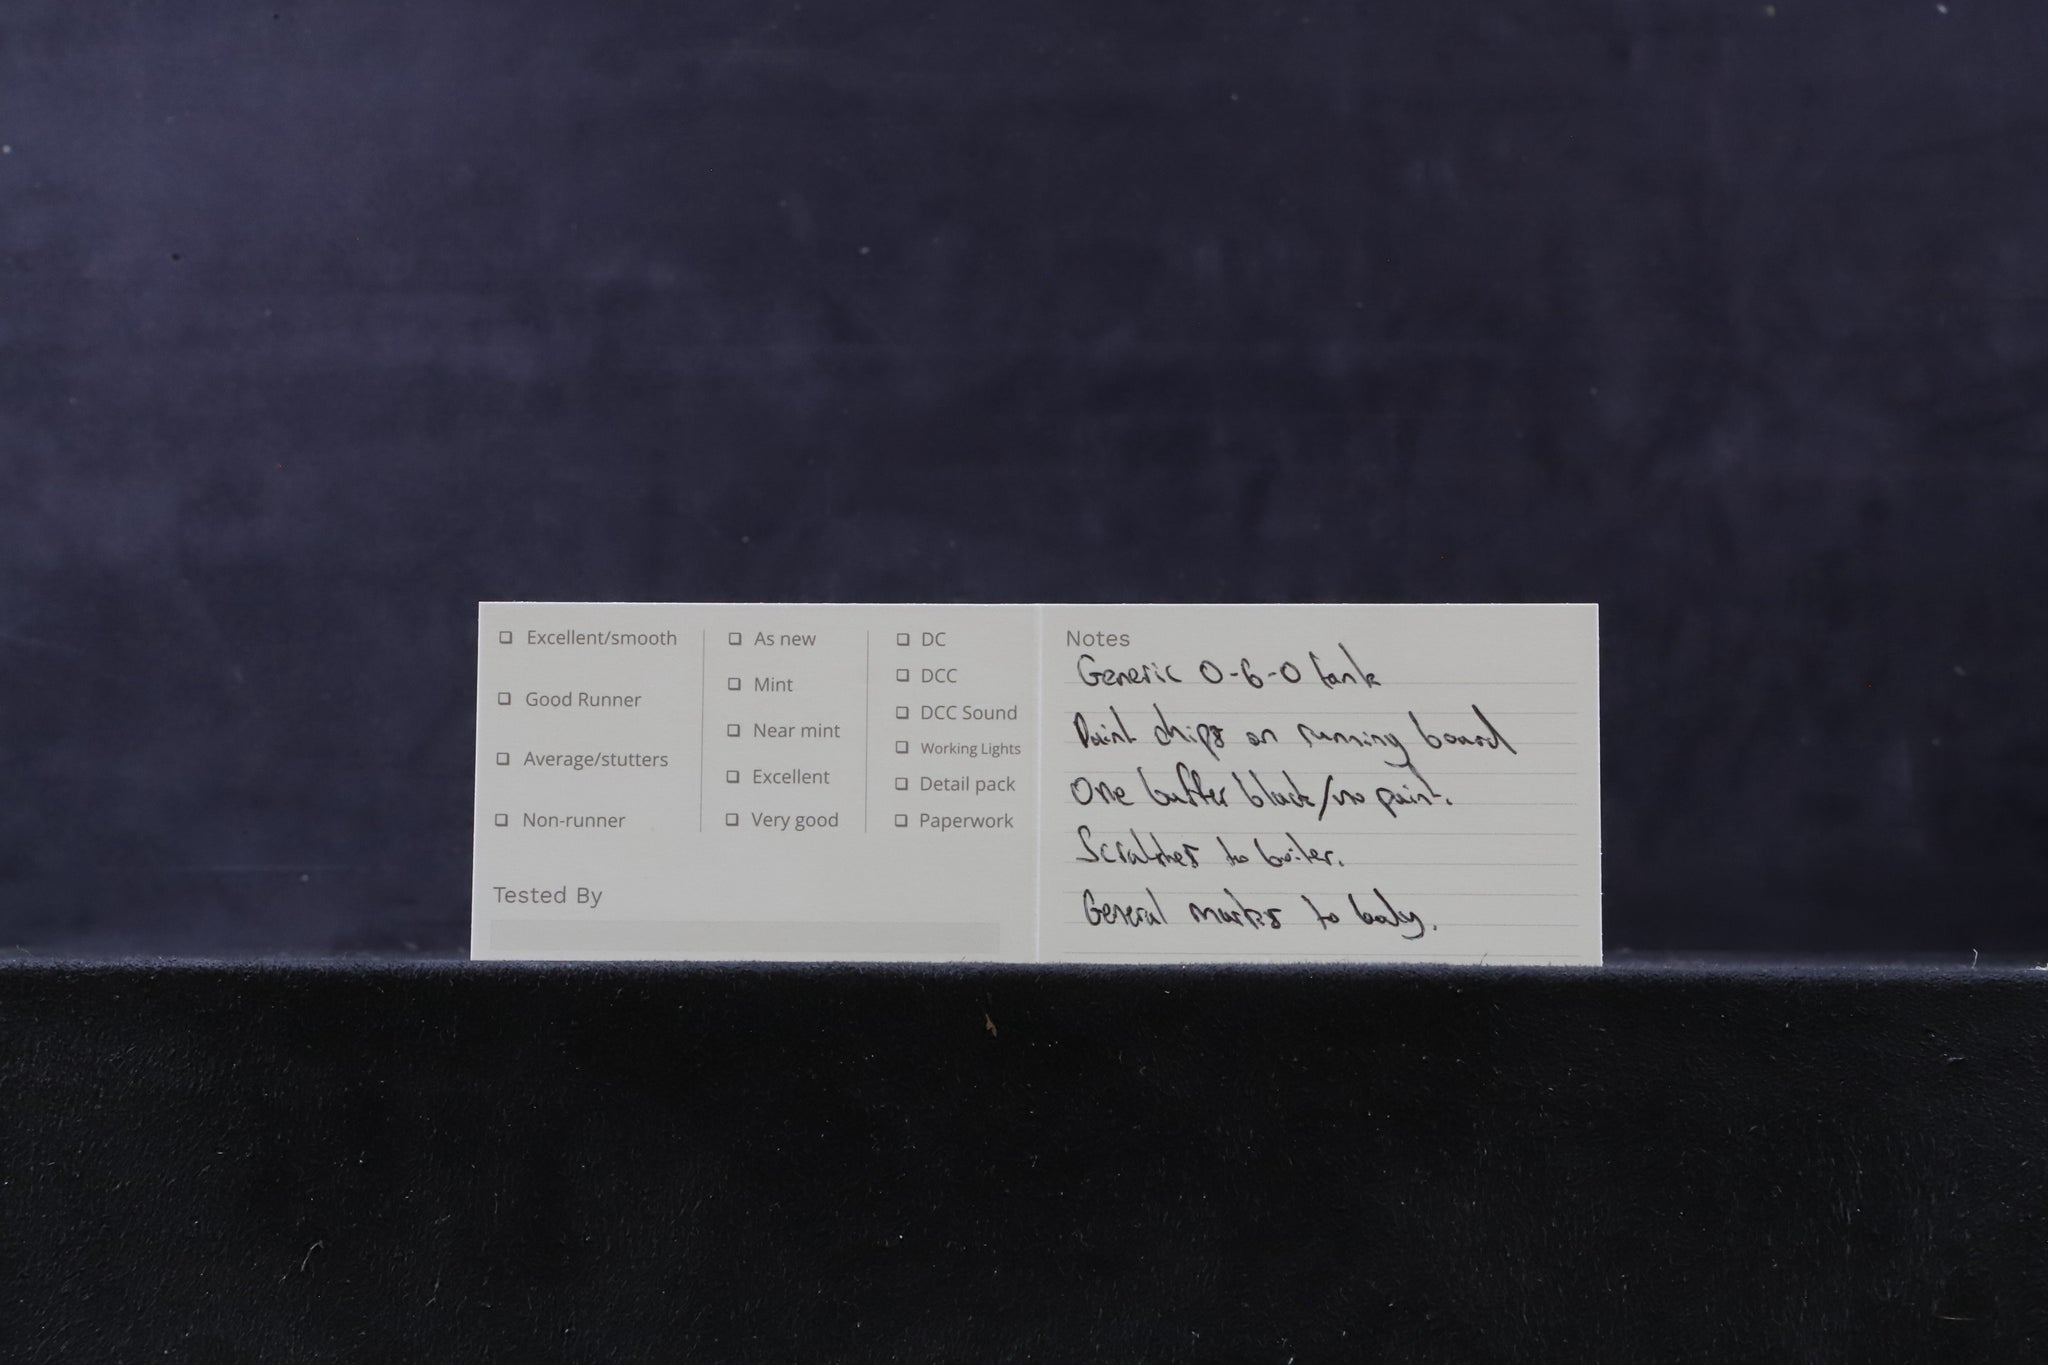 Excellent/smooth
Good Runner
Average/stutters
Non-runner
As new
Mint
Near mint
Excellent
Very good
DC
DCC
DCC Sound
Working Lights
Detail pack
Paperwork
Tested By
Notes
Generic 0-6-0 tank
Paint chips on running board
One buffer black/no paint.
Scratches to boiler.
General marks to body.